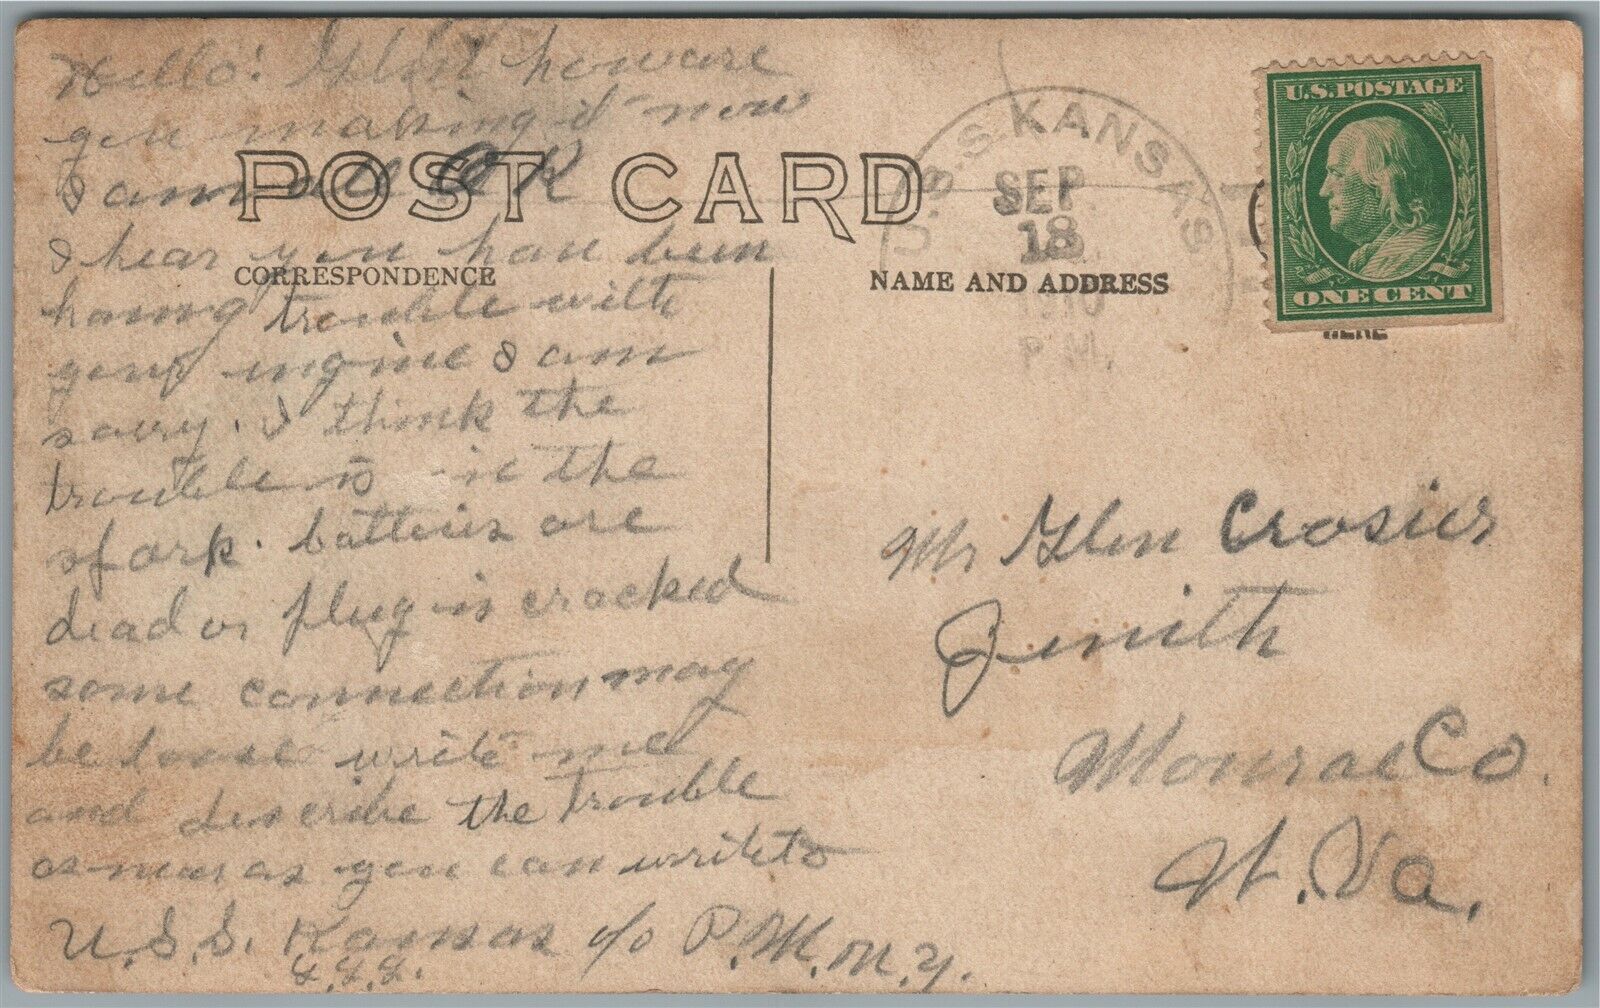 Hello! Glen how are
you making it now
I am all OK
POST CARD
I hear you have been
CORRESPONDENCE
having trouble with
your engine I am
sorry. I think the
trouble is in the
spark. batteries are
dead or plug is cracked
some connection may
be loose write me
and describe the trouble
as near as you can write to
U.S.S. Kansas c/o P.M. N.Y.
U.S.S. KANSAS
SEP
18
1910
P.M.
U.S. POSTAGE
ONE CENT
HERE
NAME AND ADDRESS
Mr Glen Crosier
Zenith
Monroe Co.
W. Va.